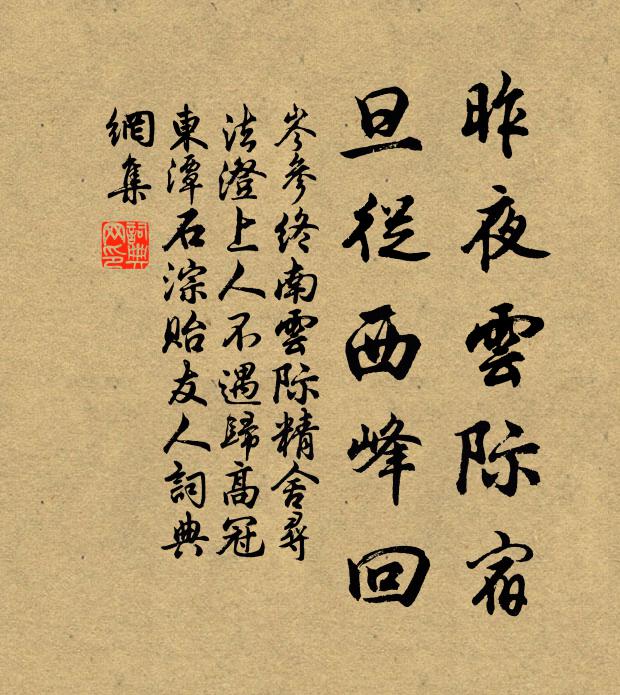 昨夜雲际宿
旦從西峰回
岑參终南雲际精舍尋
法澄上人不遇歸高冠
東潭石淙貽友人詞典
網集
詞典
网印